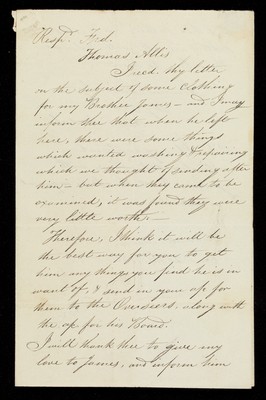 Respd. Frd.
Thomas Allis
I recd. thy letter
on the subject of some Clothing
for my Brother James - and I may
inform thee that when he left
here, there were some things
which wanted washing & repairing
which we thought of sending after
him - but when they came to be
examined, it was found they were
very little worth. -
Therefore, I think it will be
the best way for you to get
him any things you find he is in
want of, & send in your a/c for
them to the Overseers, along with
the a/c for his Board.
I will thank thee to give my
love to James, and inform him